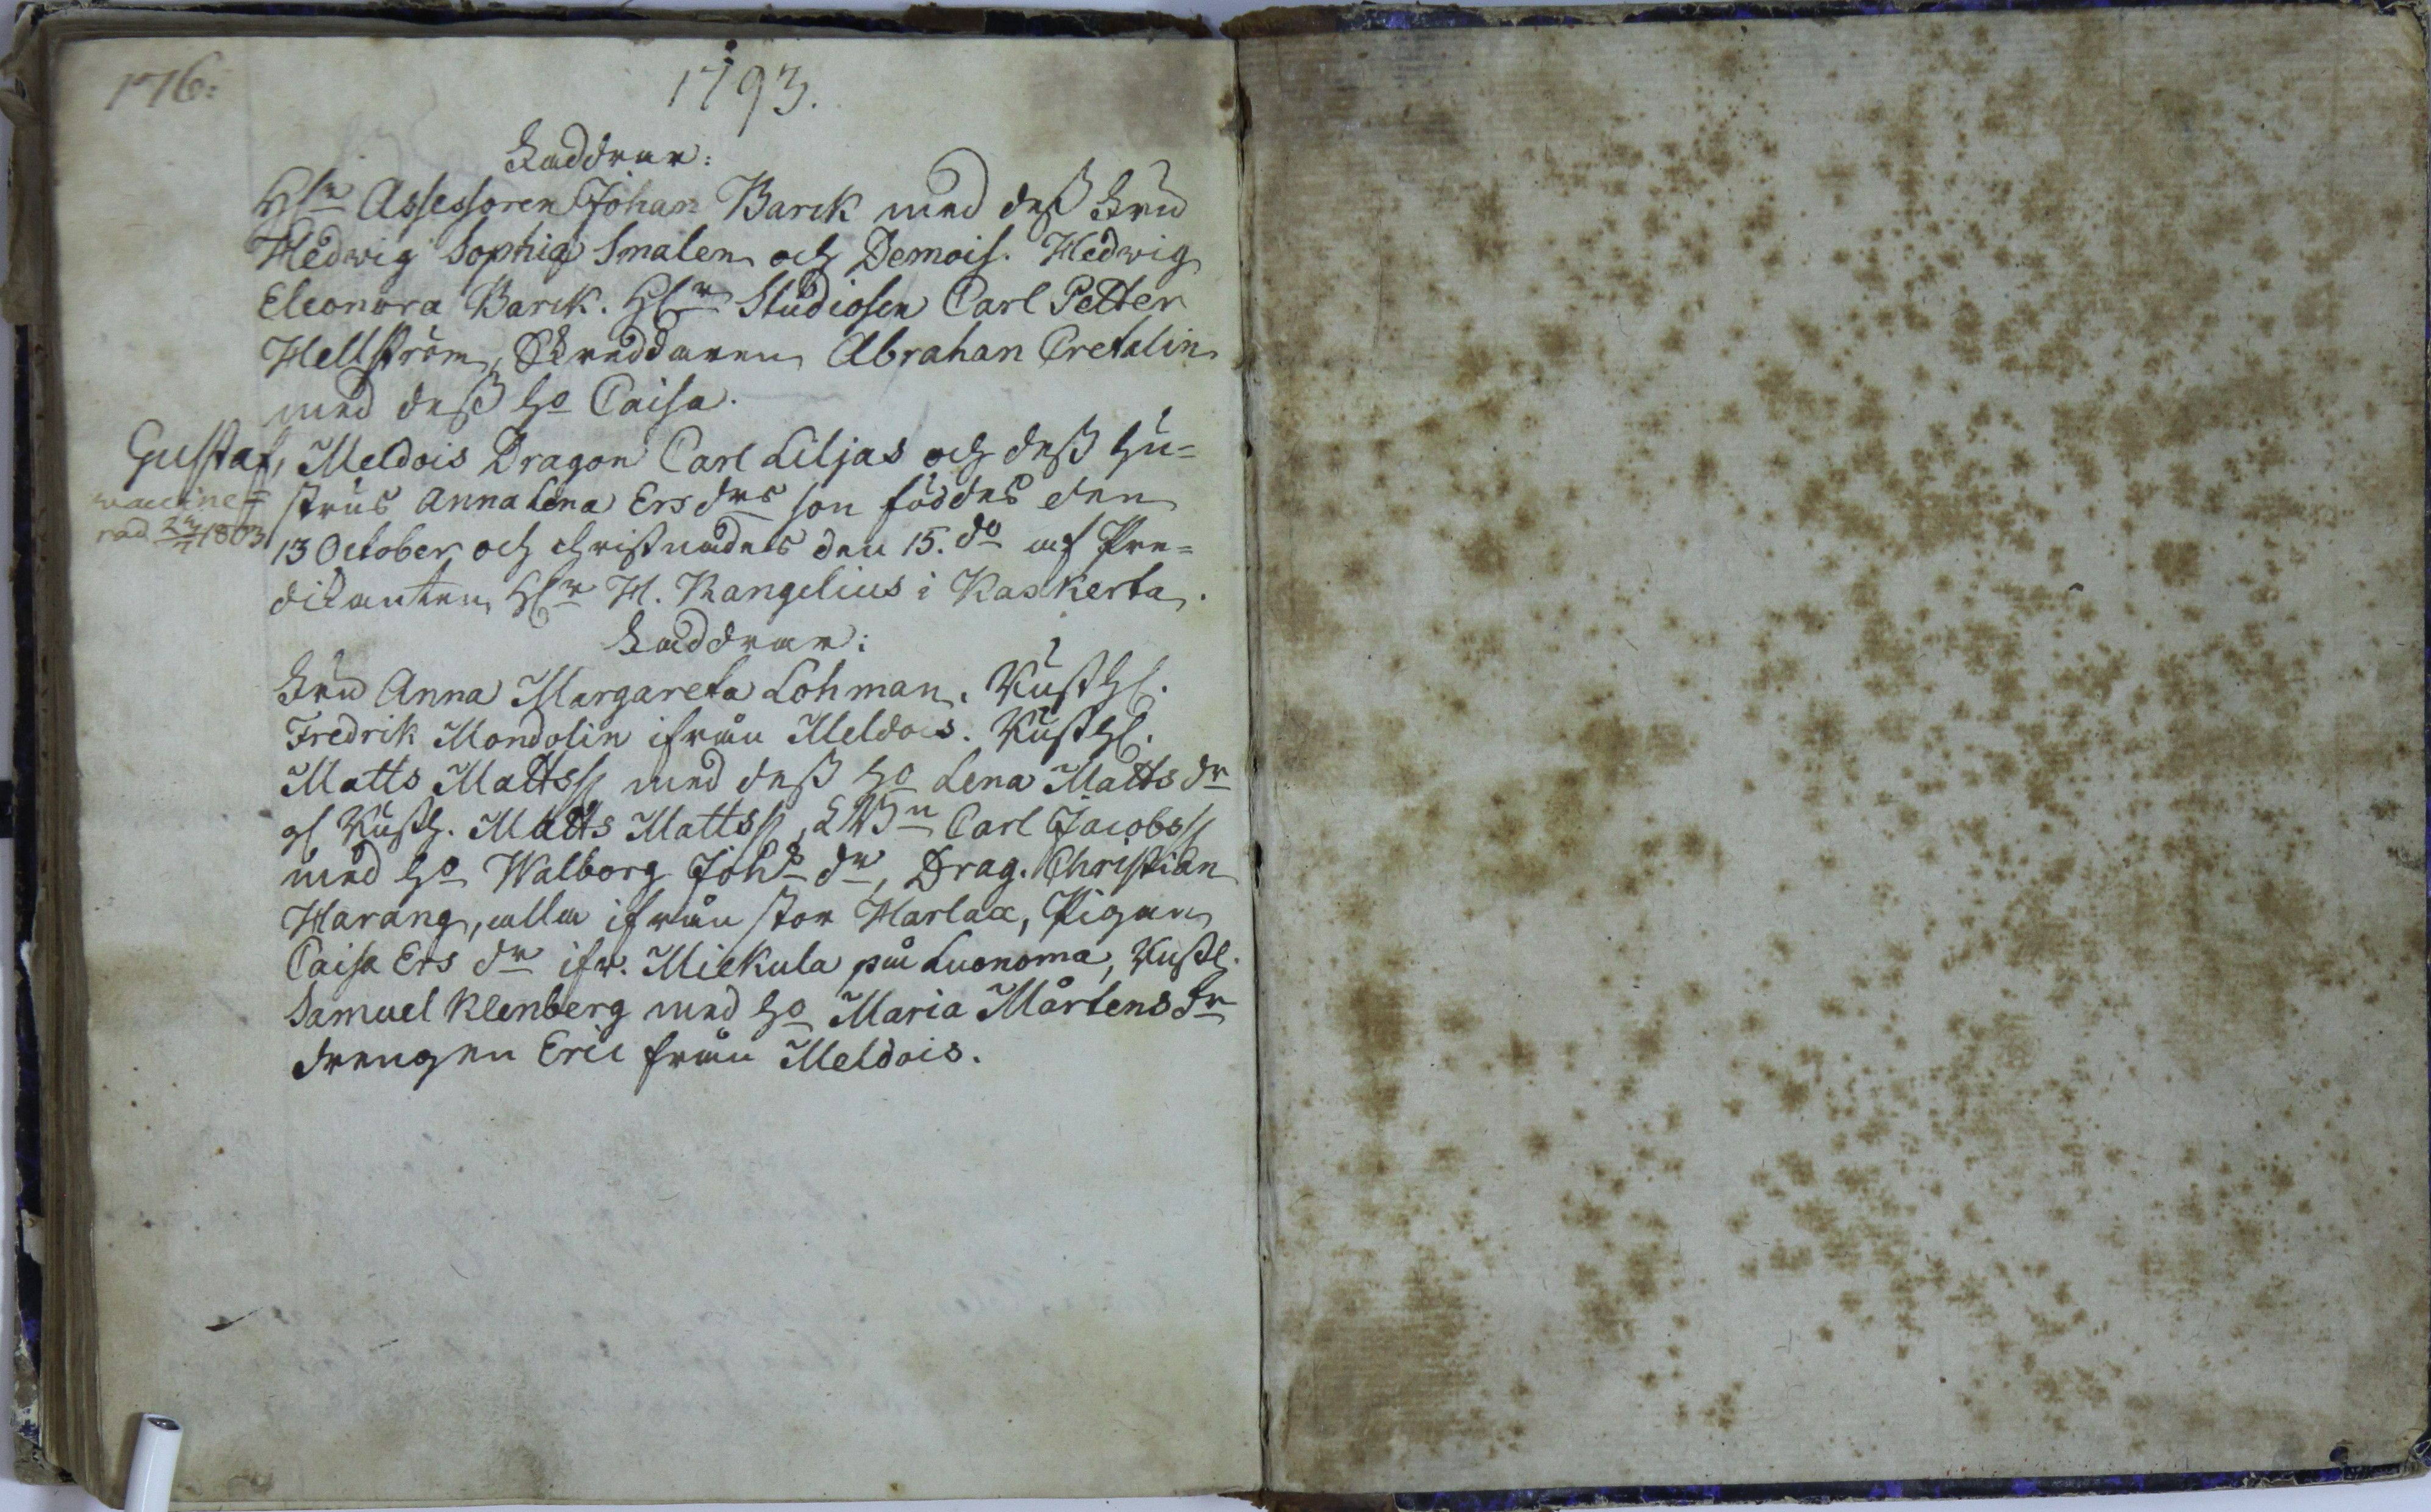 176:
1793.
Faddrar:
H\[e\]rr Assessoren Johan Barck med dess Fru
Hedwig Sophia Smalen och Demois. Hedwig
Eleonora Barck. Hr Studiosen Carl Petter
Hellström, Skreddaren Abrahan Cretalin
med dess Ho Caisa.
Gustaf, Meldois Dragon Carl Liljas och dess Hu=
strus Anna Lena Ers drs son föddes den
waccine=
rad 1803
13 October och christnades den 15. do af Pre=
dikanten Hr H. Rangelius i Kaskerta.
Faddrar:
Fru Anna Margareta Lohman. Rusth.
Fredrik Mondolin ifrån Meldois. Rusth.
Matts Mattss med dess Ho Lena Matts dr
gl Rusth. Matts Mattss, Carl Jacobss
med Ho Walborg Johs dr, Drag. Christian
Harang, alla ifrån stor Harlax, Pigan
Caisa Ers dr ifr. Mickula på Luonoma, Rusth.
Samuel Klenberg med Ho Maria Mårtens dr
drengen Eric från Meldois.